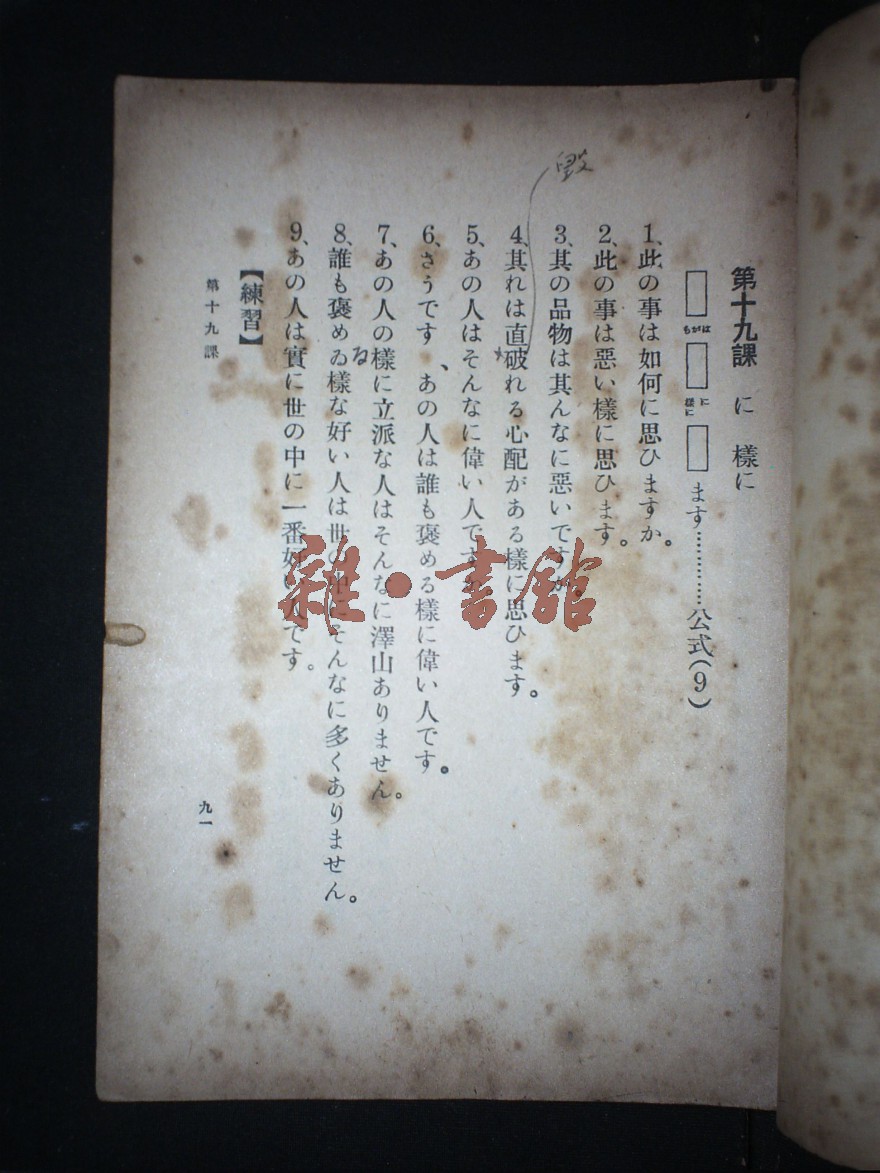 第十九課　に　樣に
はがも　に樣に　ます…………公式(9)
1、此の事は如何に思ひますか。
2、此の事は惡い樣に思ひます。
3、其の品物は其んなに惡いですか。
毀
4、其れは直破れる心配がある樣に思ひます。
5、あの人はそんなに偉い人ですか。
6、さうです、あの人は誰も褒める樣に偉い人です。
7、あの人の樣に立派な人はそんなに澤山ありません。
る
8、誰も褒めゐ樣な好い人は世の中にそんなに多くありません。
9、あの人は實に世の中に一番好い人です。
【練習】
第十九課
九一
雜·書館